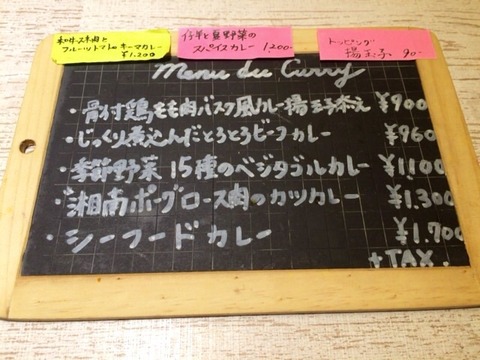 和牛スネ肉と
フルーツトマトのキーマカレー
¥1,200
仔羊と夏野菜の
スパイスカレー 1,200-
トッピング
揚玉子 90-
Menu du Curry
・骨付鶏もも肉バスク風カレー揚玉子添え ¥900
・じっくり煮込んだとろとろビーフカレー ¥960
・季節野菜15種のベジタブルカレー ¥1,100
・湘南ポークロース肉のカツカレー ¥1,300
・シーフードカレー ¥1,700
+TAX.